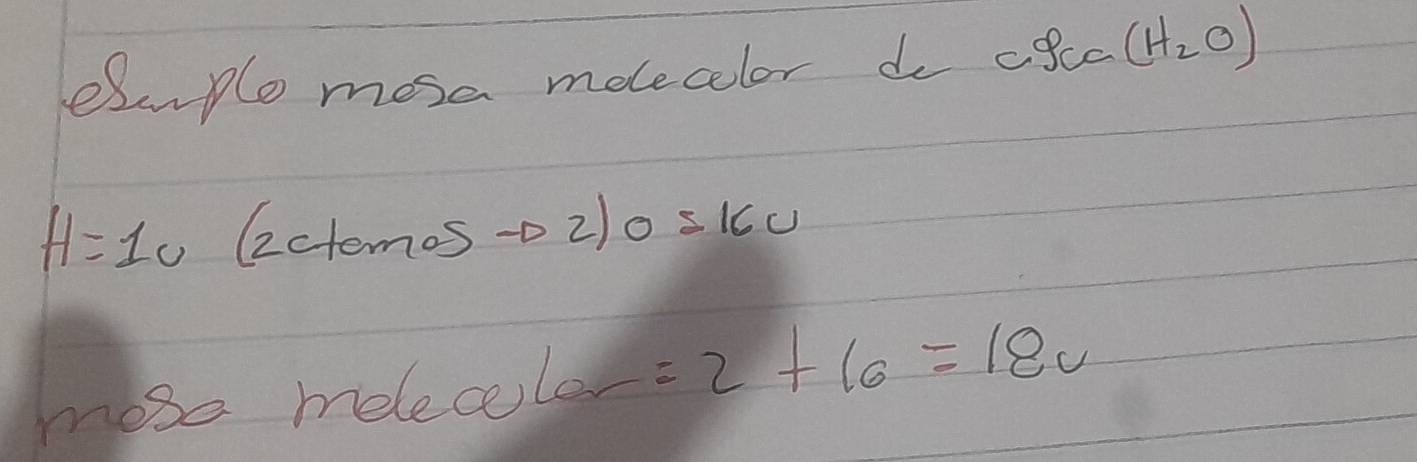 exemplo masa molecular de agua (H₂O)
H=1u (2 átomos → 2) O = 16u
masa molecular = 2 + 16 = 18u